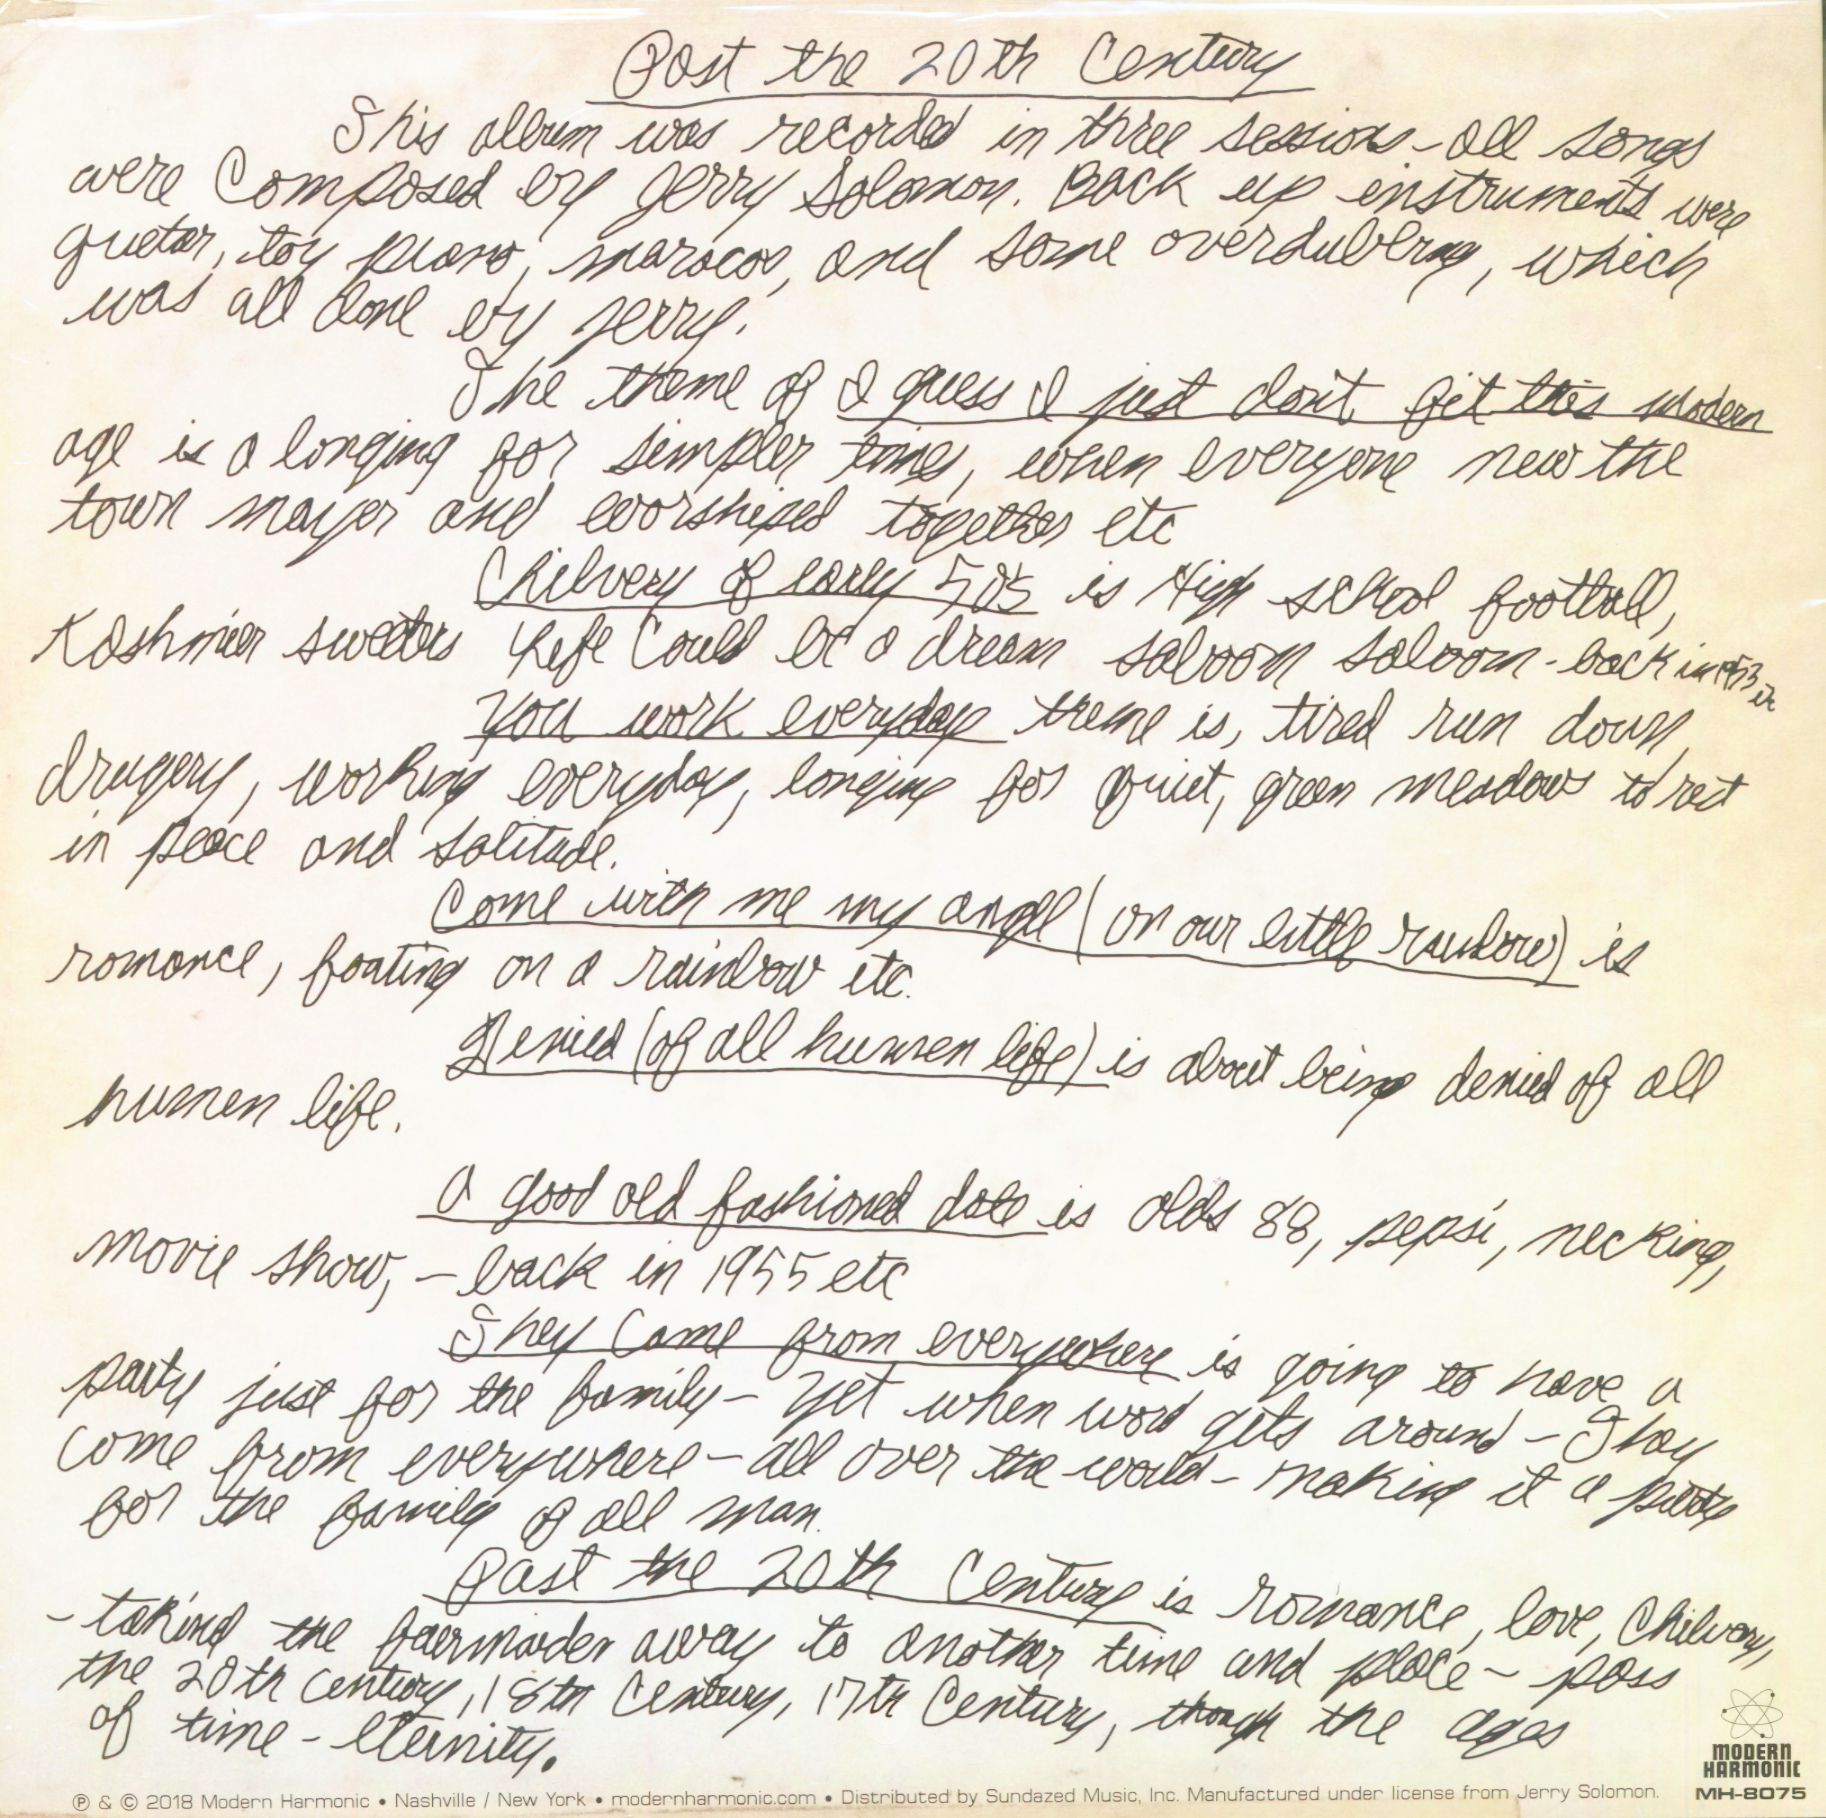 Past the 20th Century
This album was recorded in three sessions - all songs
were Composed by Jerry Solomon. Back up instruments were
guetar, toy piano, maracas, and some overdubbing, which
was all done by Jerry.
The theme of I guess I just don't fit this modern
age is a longing for simpler times, when everyone new the
town mayor and worshiped together etc
Chilvery of early 50's is High school football,
Kashmier sweeters Life Could be a dream saboom saboom - back in 1953 etc
You work everyday theme is, tired run down,
drugery, working everyday, longing for quiet, green meadows to rest
in peace and solitude.
Come with me my angel (on our little rainbow) is
romance, foating on a rainbow etc.
Denied (of all human life) is about being denied of all
human life.
A good old fashioned date is olds 88, pepsi, necking,
movie show, - back in 1955 etc
They Came from everywhere is going to have a
party just for the family - yet when word gets around - They
come from everywhere - all over the world - making it a party
for the family of all man.
Past the 20th Century is romance, love, Chilvery,
- taking the fairmaiden away to another time and place - pass
the 20th century, 18th Century, 17th Century, though the ages
of time - eternity.
MODERN
HARMONIC
MH-8075
℗ & © 2018 Modern Harmonic • Nashville / New York • modernharmonic.com • Distributed by Sundazed Music, Inc. Manufactured under license from Jerry Solomon.